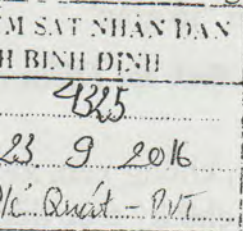 M SÁT NHÂN DÂN
H BÌNH ĐỊNH
4325
23 9 2016
Đ/c Quát - PVT